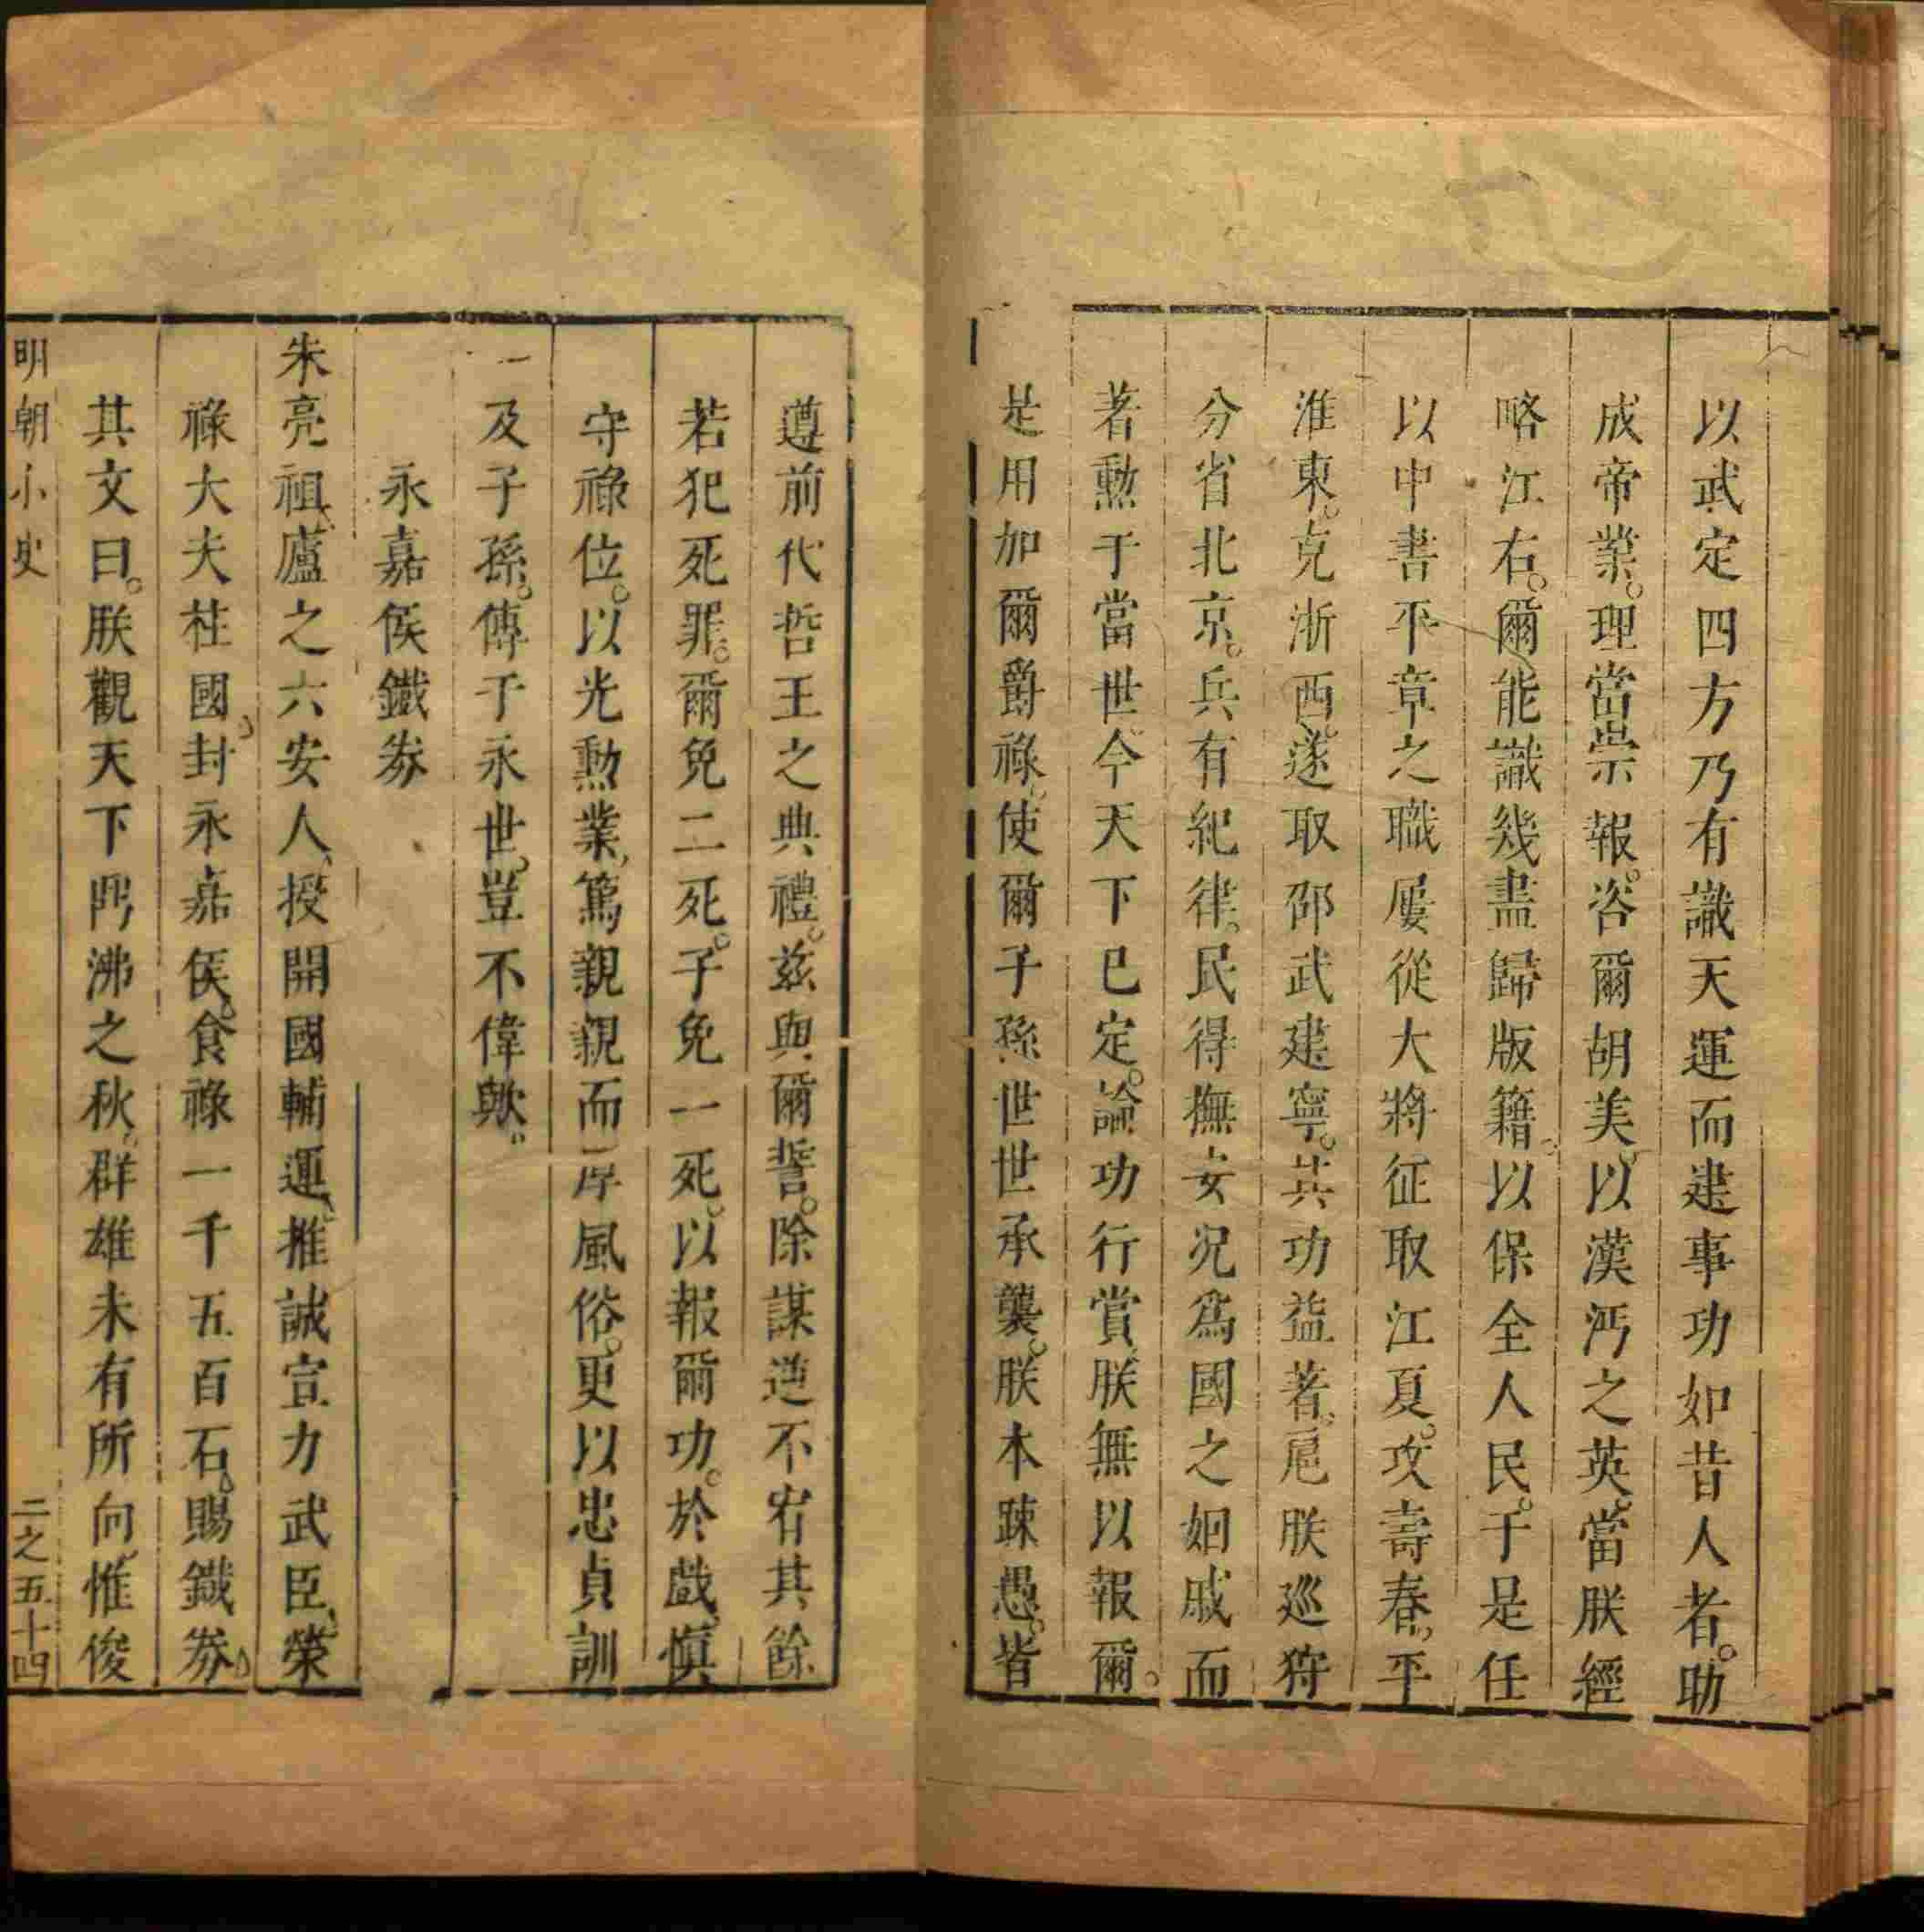 以武定四方乃有識天運而建事功如昔人者。助
成帝業。理當崇報。咨爾胡美。以漢沔之英。當朕經
略江右。爾能識幾盡歸版籍。以保全人民。于是任
以中書平章之職屢從大將征取江夏。攻壽春。平
淮東。克浙西。遂取邵武建寧。其功益著。扈朕巡狩
分省北京。兵有紀律。民得撫安况爲國之姻戚而
著勲于當世。今天下已定。論功行賞。朕無以報爾。
是用加爾爵祿。使爾子孫世世承襲。朕本踈愚。皆
遵前代哲王之典禮。兹與爾誓。除謀逆不宥其餘
若犯死罪。爾免二死。子免一死。以報爾功。於戲。慎
守祿位。以光勲業。篤親親而厚風俗。更以忠貞訓
及子孫。傳于永世。豈不偉歟。
永嘉侯鐵券
朱亮祖、廬之六安人、授開國輔運、推誠宣力武臣、榮
祿大夫柱國、封永嘉侯。食祿一千五百石。賜鐵券、
其文曰。朕觀天下鼎沸之秋。群雄未有所向、惟俊
明朝小史
二之五十四